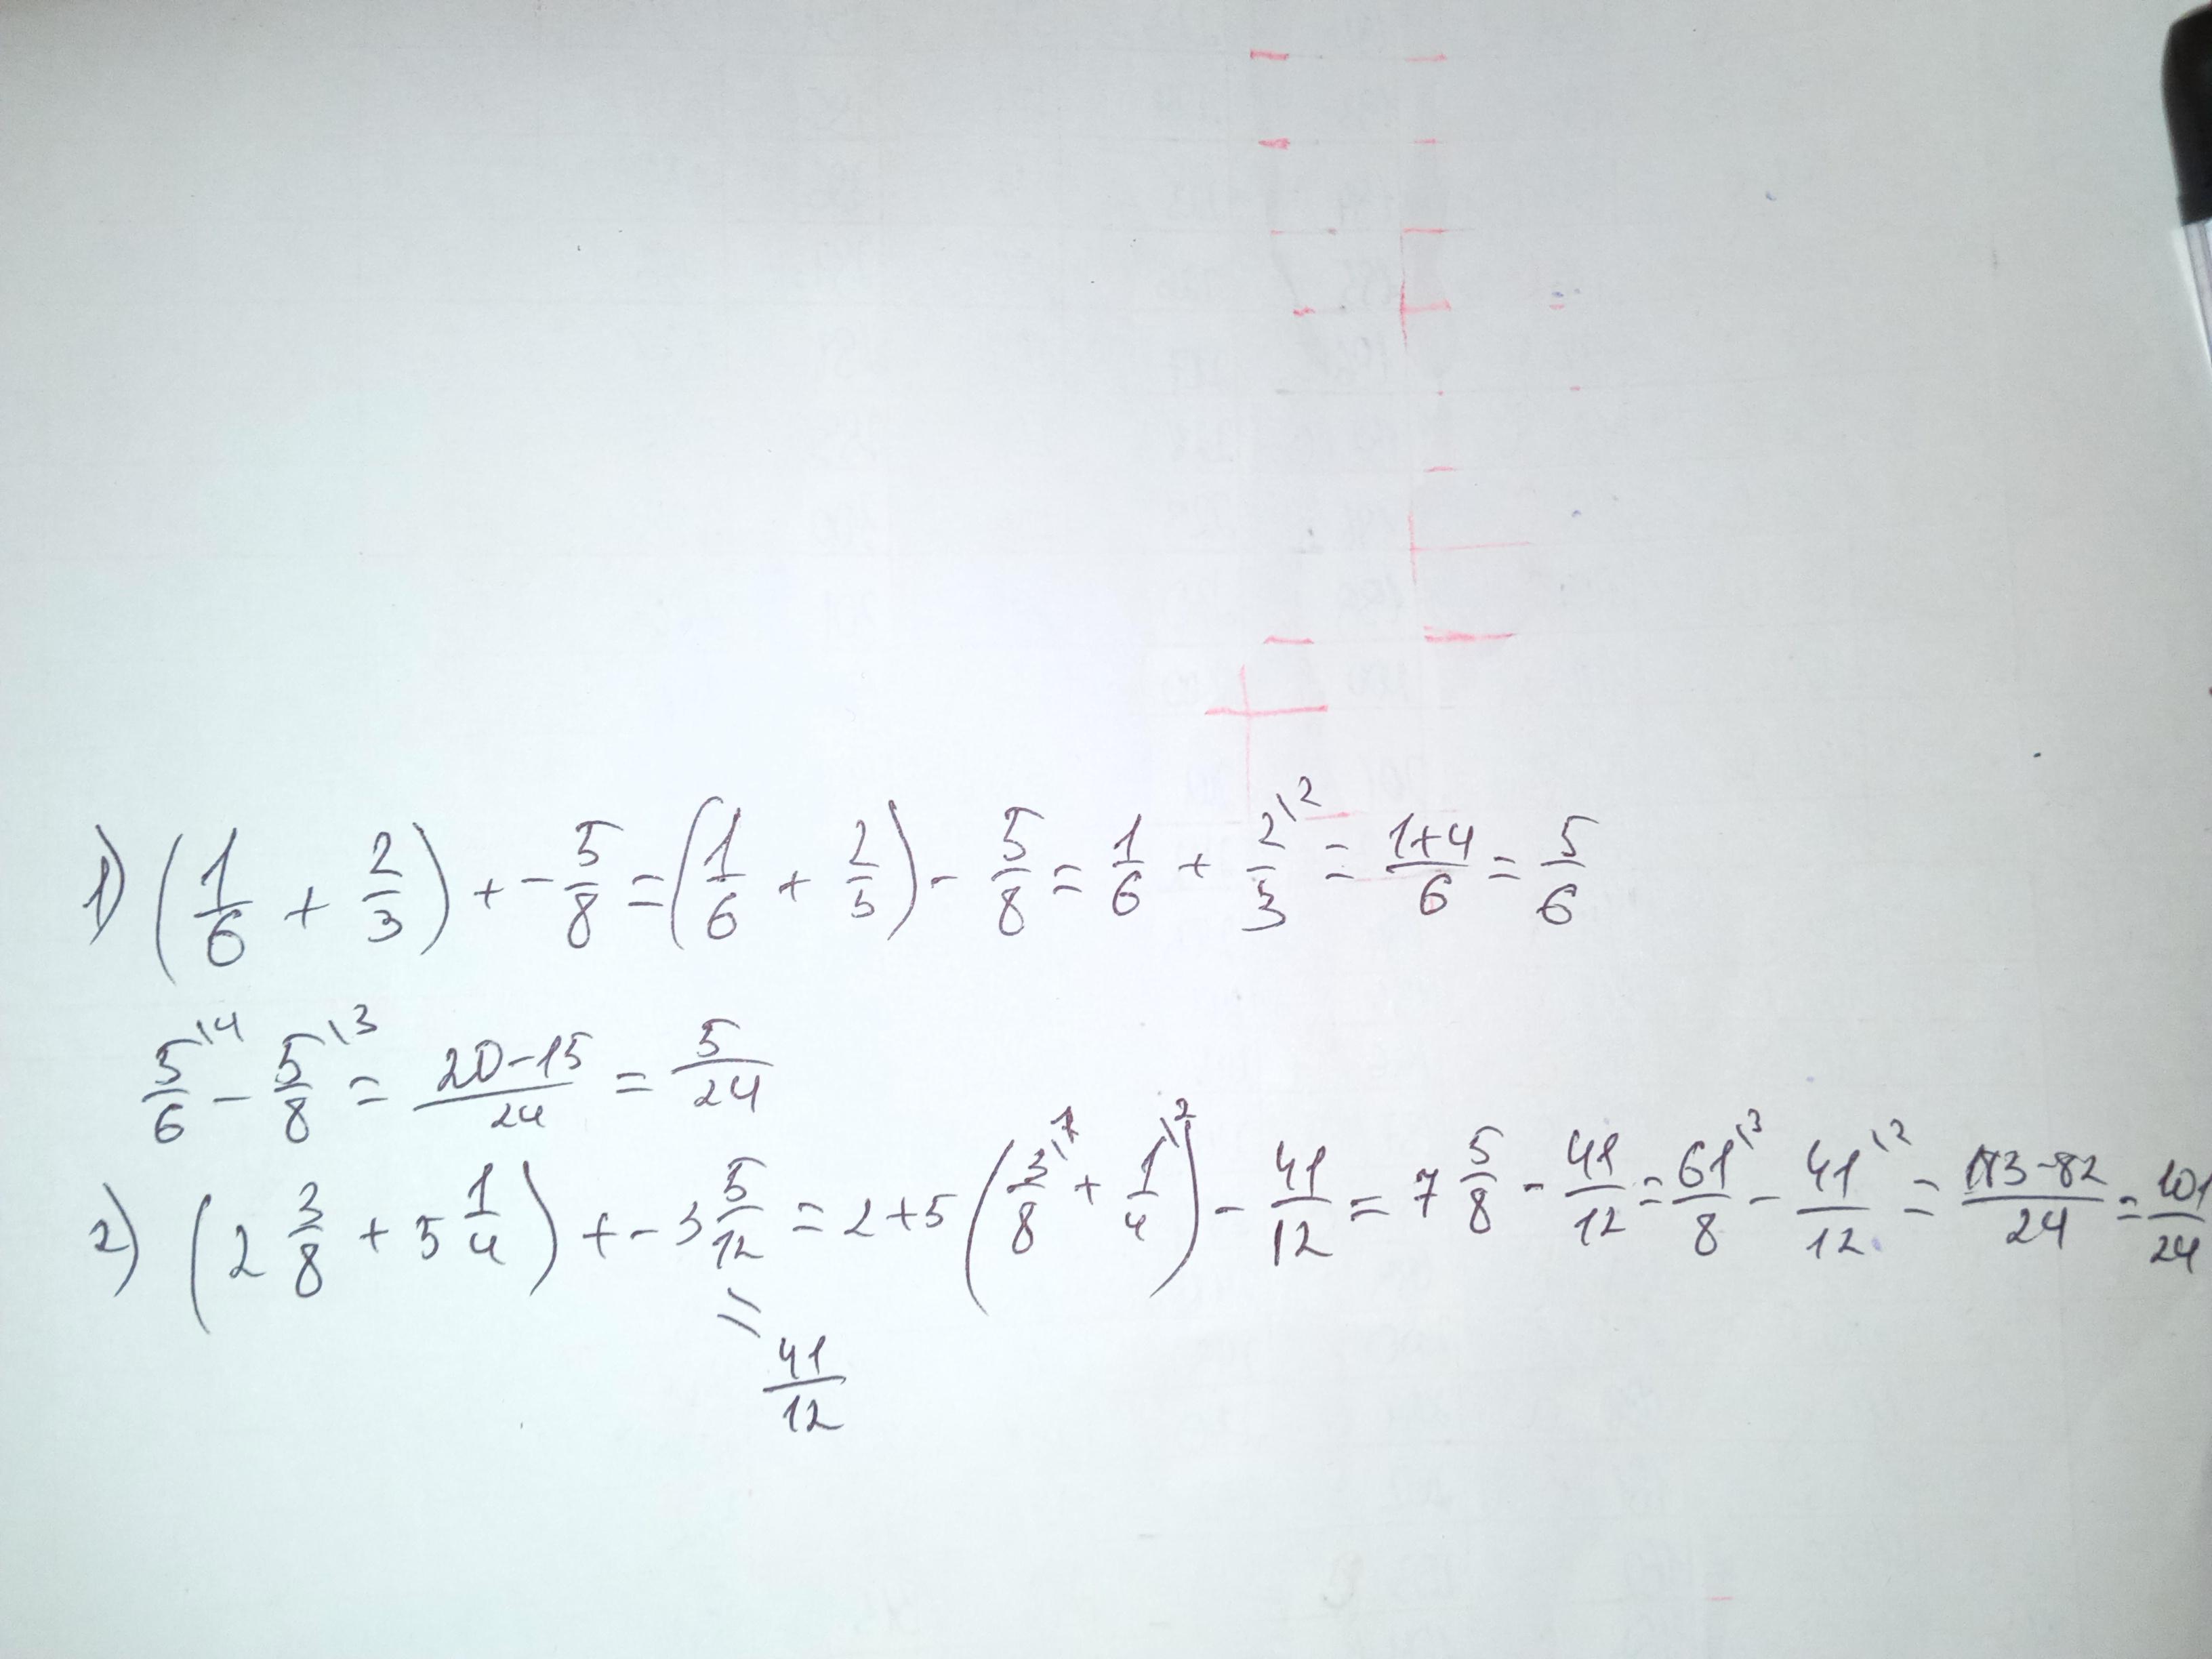 1) (1/6 + 2/3) + - 5/8 = (1/6 + 2/3) - 5/8 = 1/6 + 2/3\2 = 1+4/6 = 5/6
5/6\4 - 5/8\3 = 20-15/24 = 5/24
2) (2 3/8 + 5 1/4) + - 3 5/12 = 2+5 (3/8\1 + 1/4\2) - 41/12 = 7 5/8 - 41/12 = 61/8\3 - 41/12\2 = 183-82/24 = 101/24
= 41/12